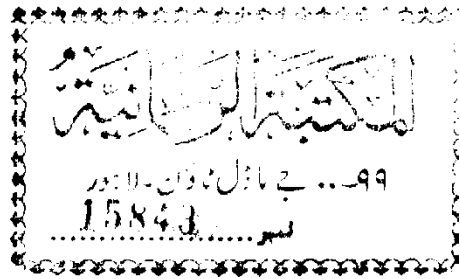 المكتبة الرحمانية
۹۹... جے ماڈل ٹاؤن۔ لاہور
نمبر 15843